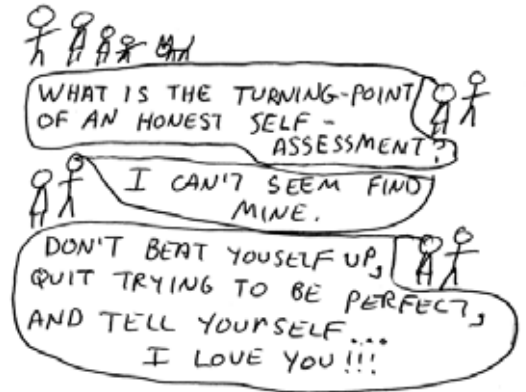 WHAT IS THE TURNING-POINT
OF AN HONEST SELF-
ASSESSMENT?
I CAN'T SEEM FIND
MINE.
DON'T BEAT YOUSELF UP,
QUIT TRYING TO BE PERFECT,
AND TELL YOURSELF...
I LOVE YOU!!!